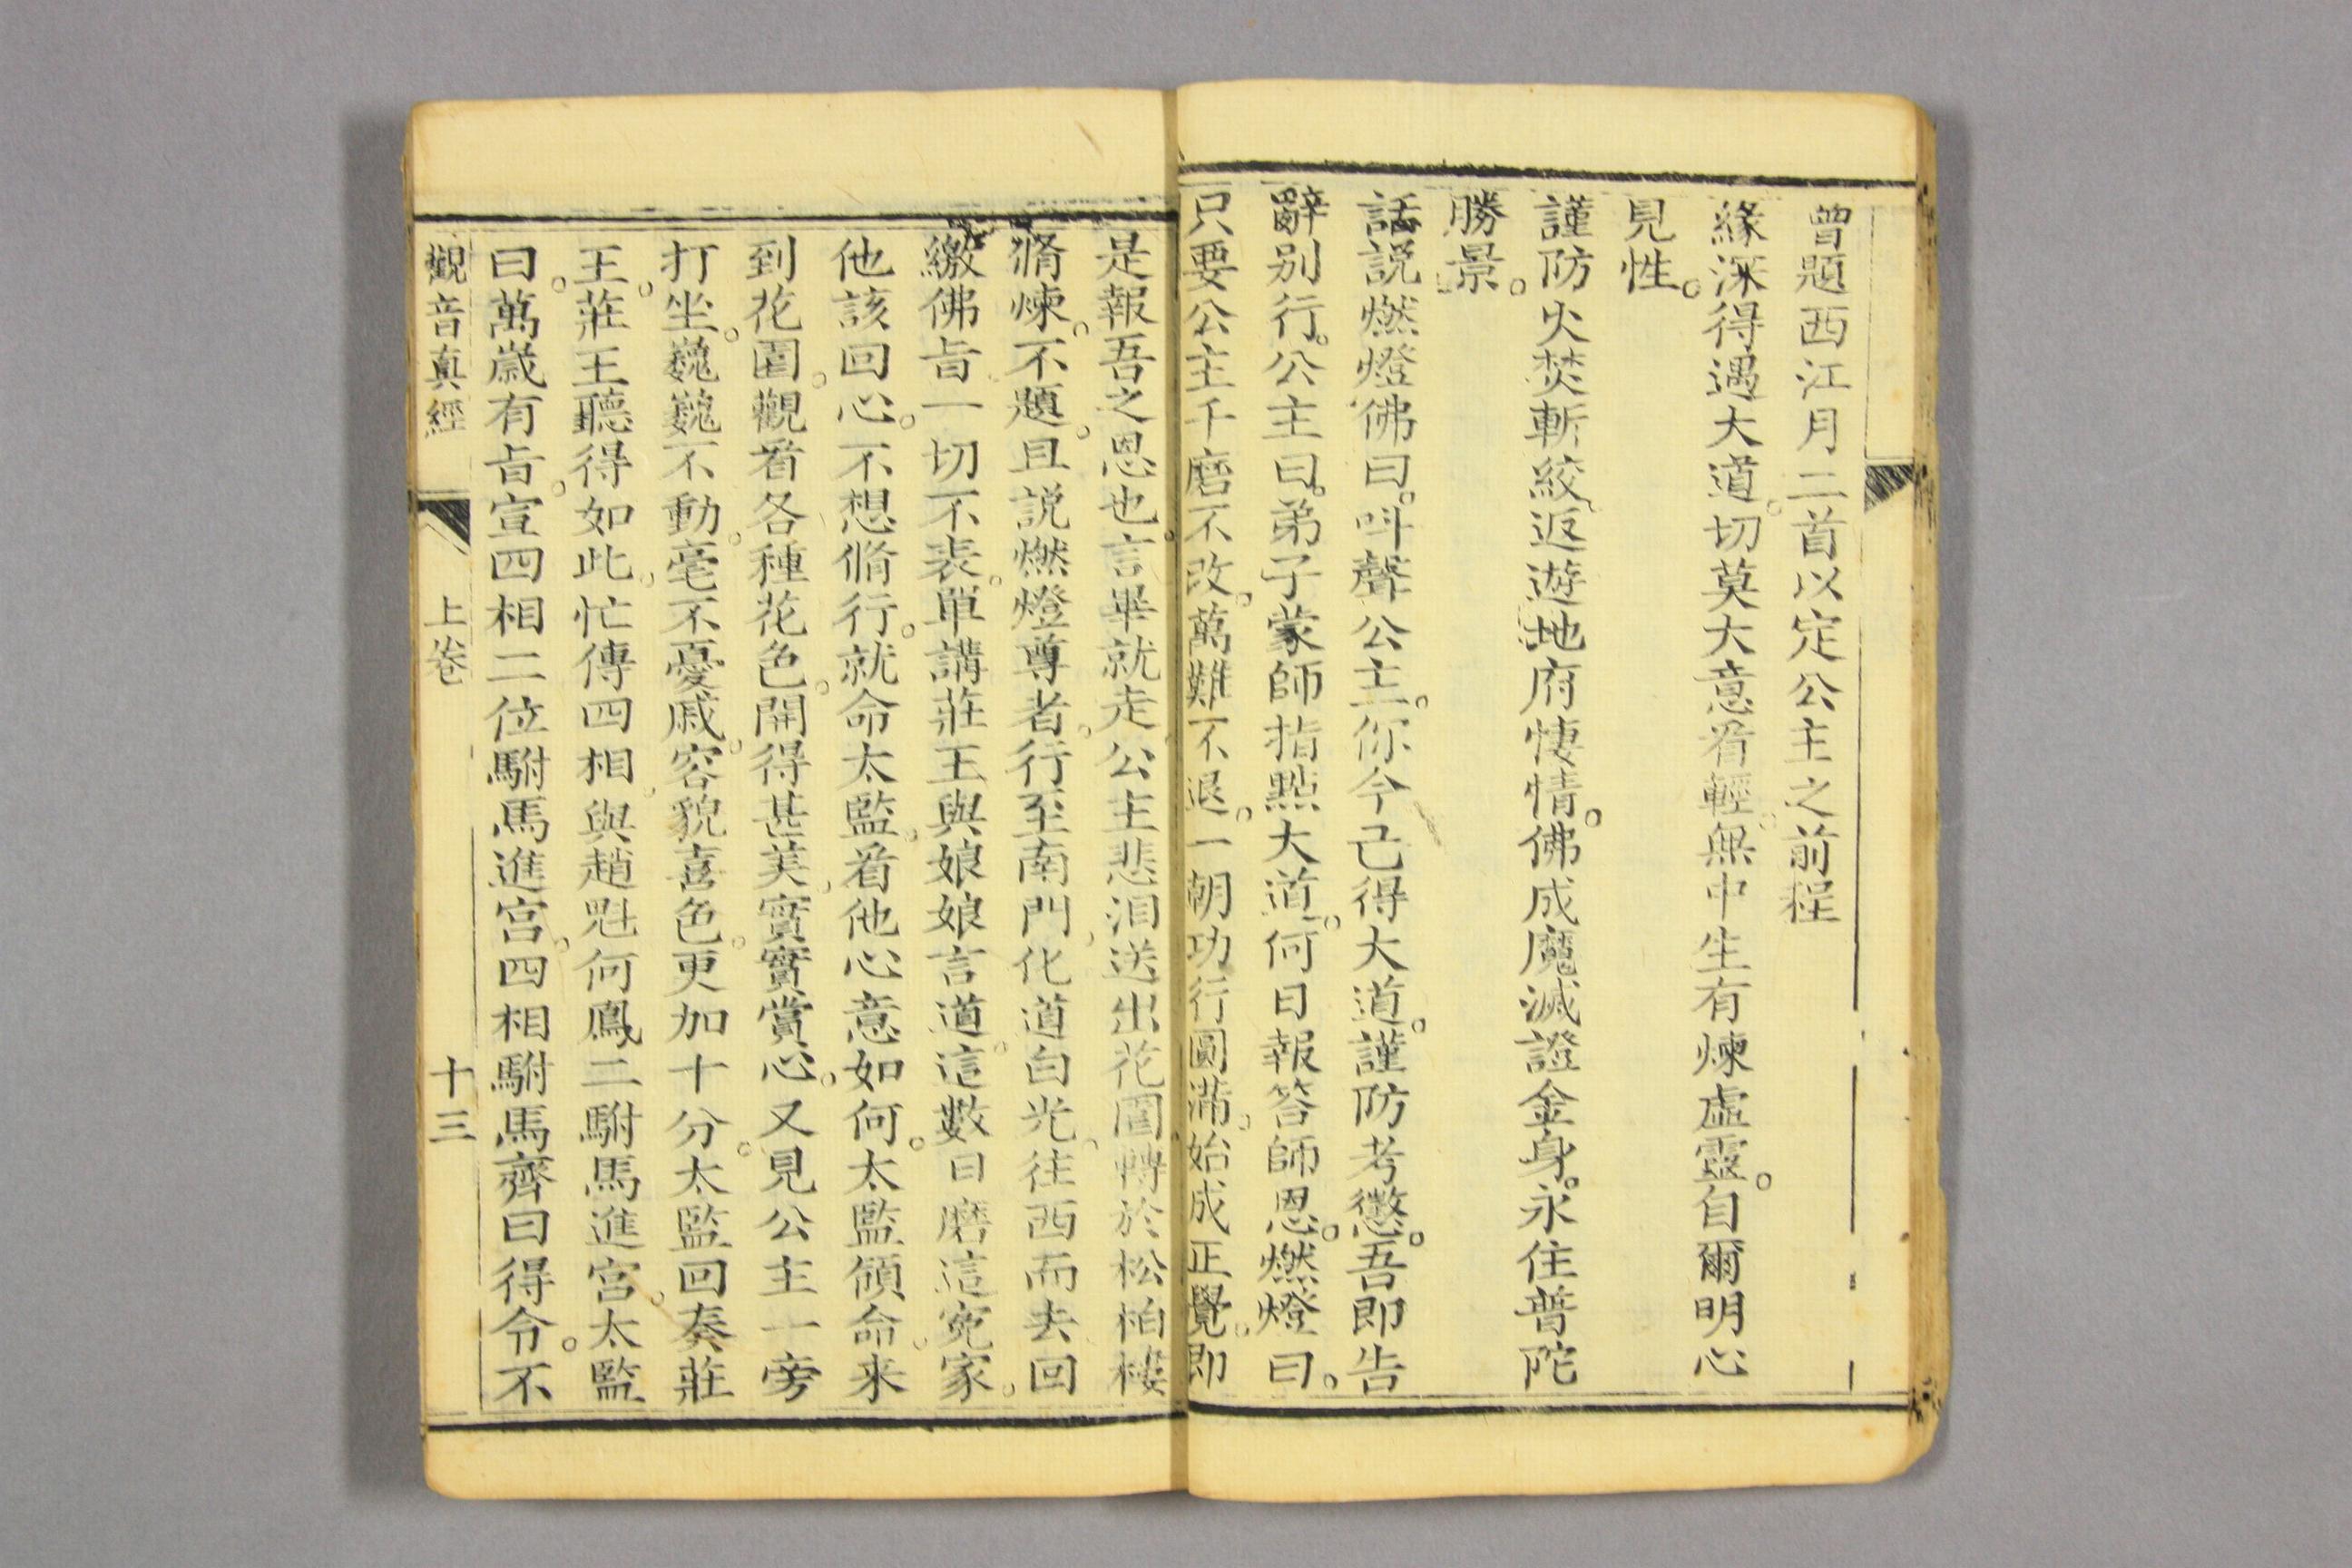 曾題西江月二首以定公主之前程
緣深得遇大道。切莫大意看輕。無中生有煉虛靈。自爾明心
見性。
謹防火焚斬絞、返遊地府悽情。佛成魔滅證金身。永住普陀
勝景。
話説燃燈佛曰。呌聲公主。你今己得大道。謹防考懲。吾即告
辭别行。公主曰。弟子蒙師指點大道。何日報答師恩。燃燈曰。
只要公主千磨不改。萬難不退。一朝功行圓滿。始成正覺。即
是報吾之恩也。言畢就走公主悲泪送出花園轉於松柏樓
脩煉。不題。且説燃燈尊者。行至南門、化道白光、往西而去回
繳佛旨一切不表。單講莊王與娘娘言道。這數日磨這寃家。
他該回心。不想脩行。就命太監。看他心意如何。太監領命。来
到花園。觀看各種花色。開得甚美、實實賞心。又見公主一旁
打坐。巍巍不動。毫不憂戚。容貌喜色。更加十分。太監回奏莊
王。莊王聽得如此。忙傳四相、與趙魁何鳳二駙馬進宮。太監
曰。萬歲有旨。宣四相二位駙馬進宮。四相駙馬齊曰得令。不
觀音真經 上卷 十三